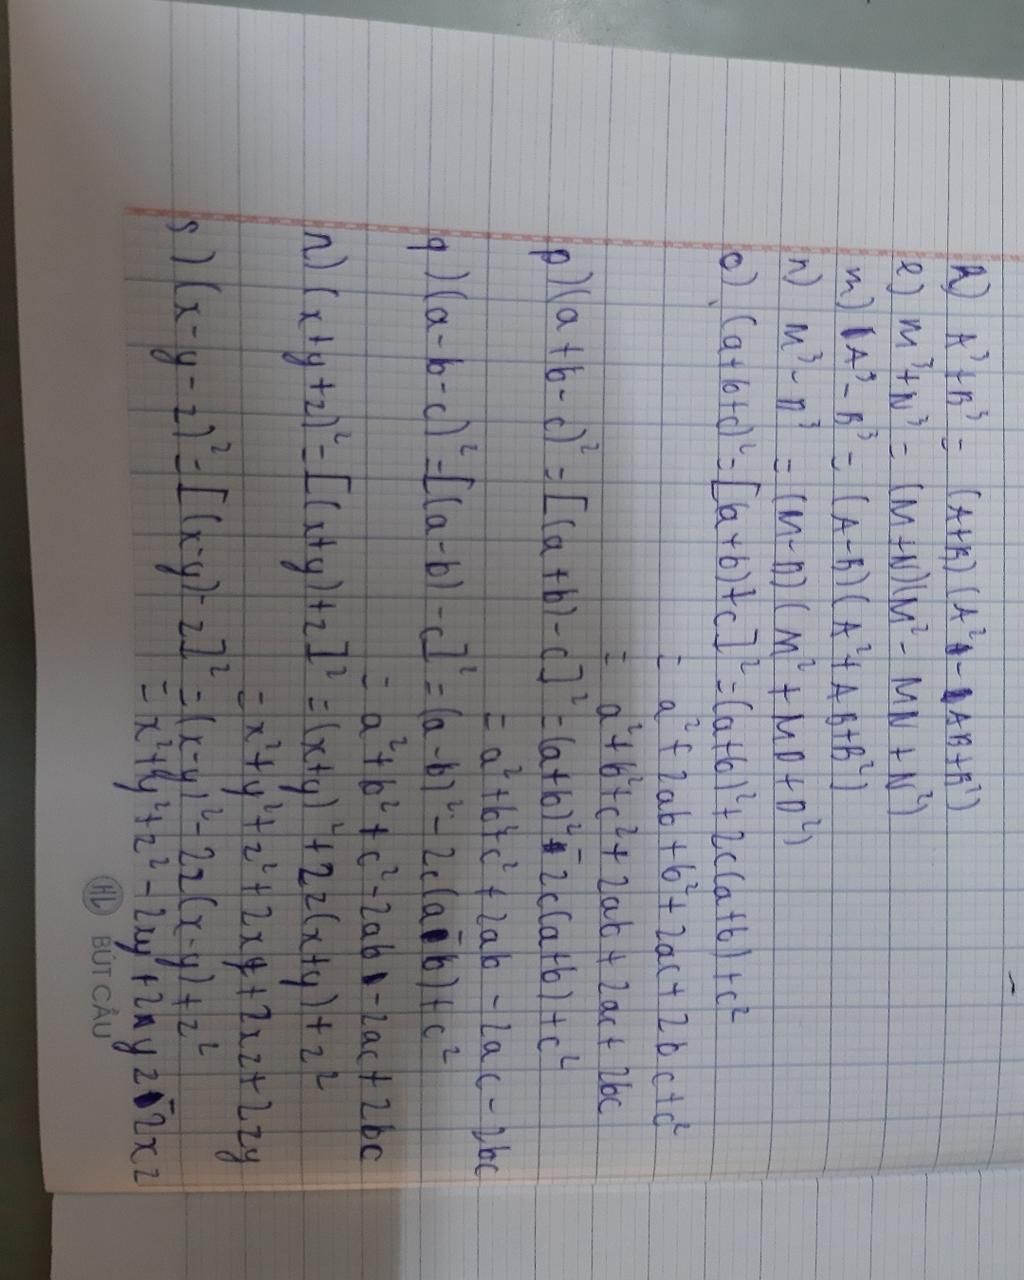 k) A³+B³ = (A+B)(A²-AB+B²)
l) M³+N³ = (M+N)(M²-MN+N²)
m) A³-B³ = (A-B)(A²+AB+B²)
n) M³-n³ = (M-n)(M²+Mn+n²)
o) (a+b+c)² = [a+b)+c]² = (a+b)²+2c(a+b)+c²
= a²+2ab+b²+2ac+2bc+c²
= a²+b²+c²+2ab+2ac+2bc
p) (a+b-c)² = [(a+b)-c]² = (a+b)²-2c(a+b)+c²
= a²+b²+c²+2ab-2ac-2bc
q) (a-b-c)² = [(a-b)-c]² = (a-b)²-2c(a-b)+c²
= a²+b²+c²-2ab-2ac+2bc
r) (x+y+z)² = [(x+y)+z]² = (x+y)²+2z(x+y)+z²
= x²+y²+z²+2xy+2xz+2zy
s) (x-y-z)² = [(x-y)-z]² = (x-y)²-2z(x-y)+z²
= x²+y²+z²-2xy+2yz-2xz
HL BÚT CẦU